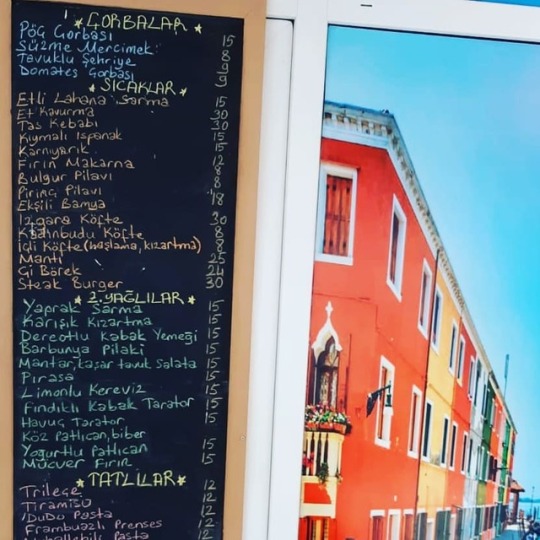 ★ ÇORBALAR ★
Pöç Çorbası 15
Süzme Mercimek 8
Tavuklu Şehriye 9
Domates Çorbası 9
★ SICAKLAR ★
Etli Lahana Sarma 15
Et Kavurma 30
Tas Kebabı 30
Kıymalı Ispanak 15
Karnıyarık 15
Fırın Makarna 12
Bulgur Pilavı 8
Pirinç Pilavı 8
Ekşili Bamya 18
Izgara Köfte 30
Kadınbudu Köfte 8
İçli Köfte (haşlama, kızartma) 8
Mantı 25
Çi Börek 24
Steak Burger 30
★ Z. YAĞLILAR ★
Yaprak Sarma 15
Karışık Kızartma 15
Dereotlu Kabak Yemeği 15
Barbunya Pilaki 15
Mantar, kaşar tavuk salata 15
Pırasa 15
Limonlu Kereviz 15
Fındıklı Kabak Tarator 15
Havuç Tarator 15
Köz Patlıcan, biber
Yoğurtlu Patlıcan 15
Mücver Fırın 15
★ TATLILAR ★
Trileçe 12
Tiramisu 12
DuDu Pasta 12
Frambuazlı Prenses 12
Muhallebili Pasta 12